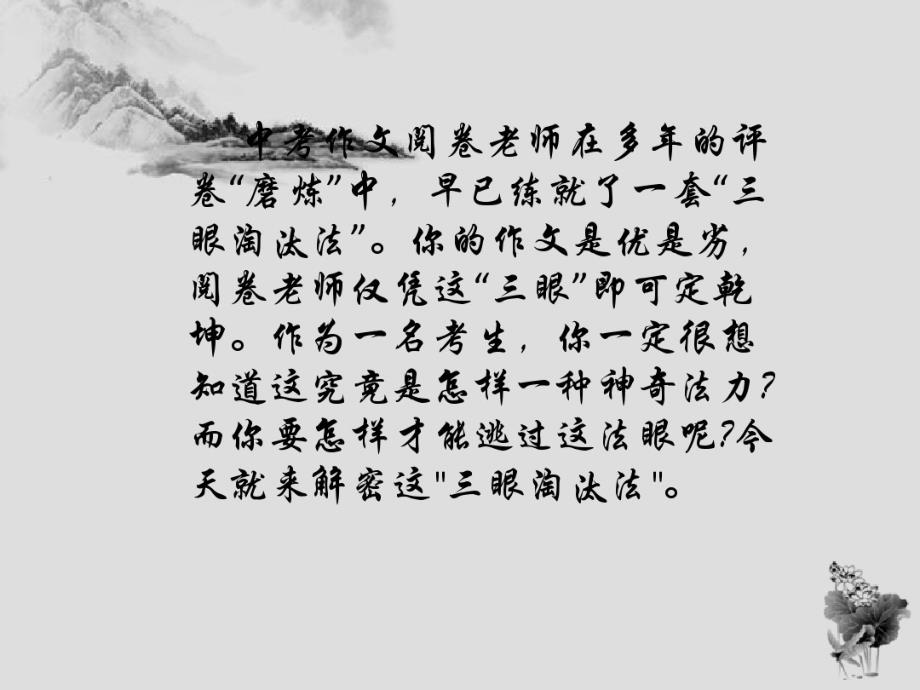 中考作文阅卷老师在多年的评
卷“磨炼”中，早已练就了一套“三
眼淘汰法”。你的作文是优是劣，
阅卷老师仅凭这“三眼”即可定乾
坤。作为一名考生，你一定很想
知道这究竟是怎样一种神奇法力?
而你要怎样才能逃过这法眼呢?今
天就来解密这"三眼淘汰法"。